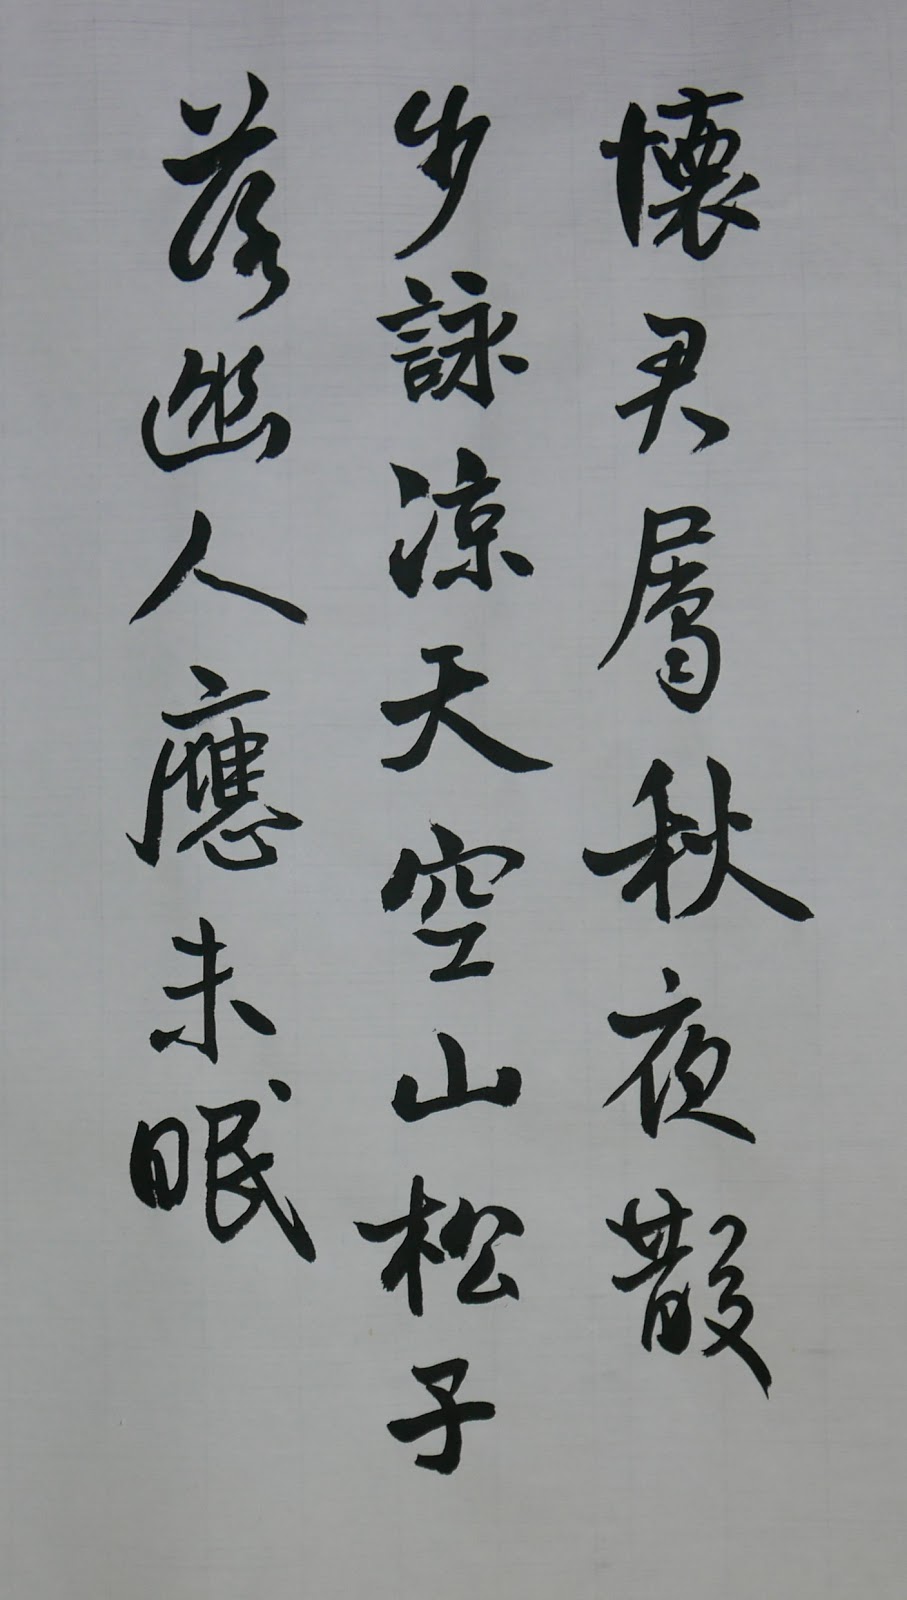 懷君屬秋夜散
步詠涼天空山松子
落幽人應未眠